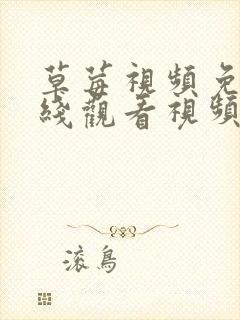 草莓視頻免
綫觀看視頻
滚鳥